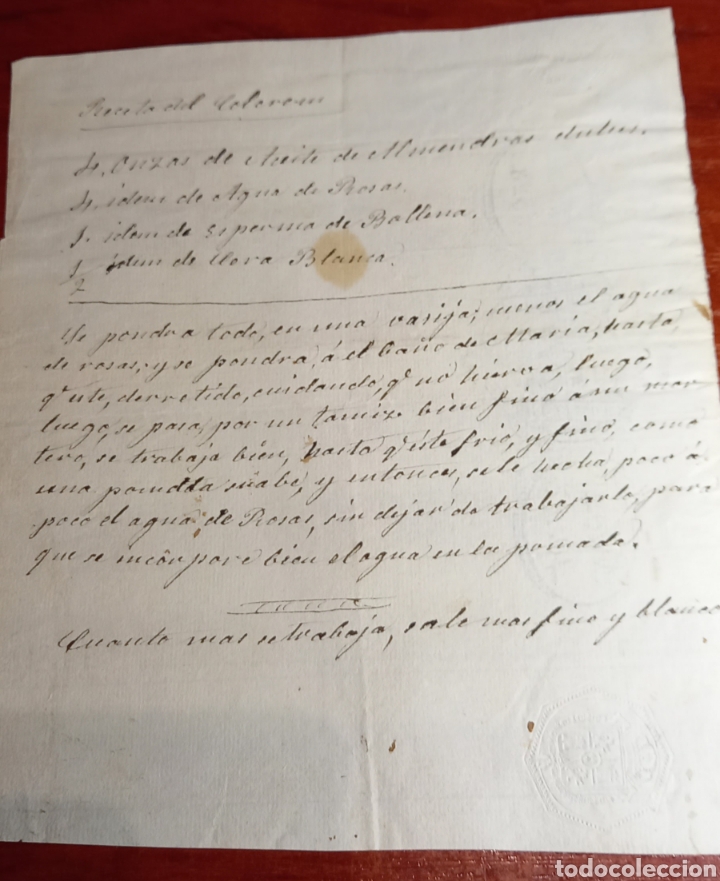 Receta del Colorem
4. Onzas de Aceite de Almendras dulces.
4. idem de Agua de Rosas.
1. idem de Esperma de Ballena.
1/2 idem de Cera Blanca.
Se pondra todo, en una vasija, menos el agua
de rosas, y se pondra, á el baño de Maria, hasta
qe. este, derretido, cuidando, qe. no hierva, luego,
luego, se pasa, por un tamiz bien fino á un mor
tero, se trabaja bien, hasta qe. este frio, y fino, como
una pomada suabe, y entonces, se le hecha, poco á
poco el agua de Rosas, sin dejar de trabajarlo, para
que se incorpore bien el agua en la pomada.
Cuanto mas se trabaja, sale mas fino y blanco
todocoleccion